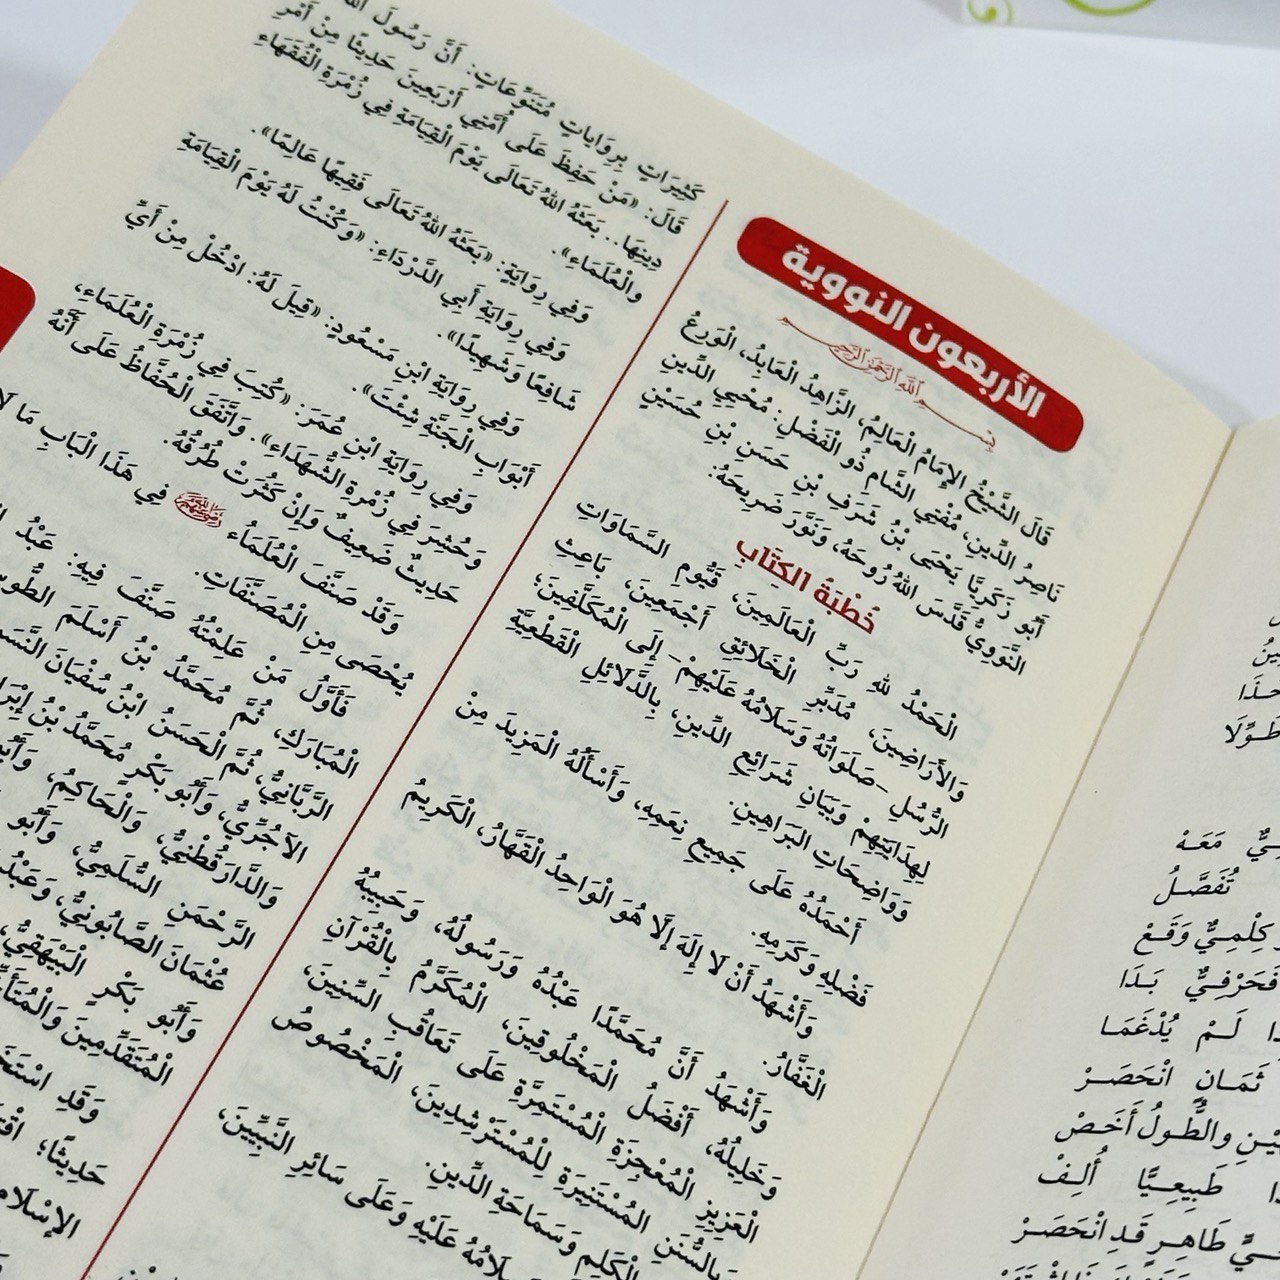 الأربعون النووية
بِسْمِ اللَّهِ الرَّحْمَٰنِ الرَّحِيمِ
قَالَ الشَّيْخُ الإِمَامُ الْعَالِمُ، الزَّاهِدُ الْعَابِدُ، الْوَرِعُ
نَاصِرُ الدِّينِ، مُفْتِي الشَّامِ ذُو الْفَضْلِ: مُحْيِي الدِّينِ
أَبُو زَكَرِيَّا يَحْيَى بْنُ شَرَفِ بْنِ حَسَنِ بْنِ حُسَيْنٍ
النَّوَوِيُّ قَدَّسَ اللهُ رُوحَهُ، وَنَوَّرَ ضَرِيحَهُ:
خُطْبَةُ الكِتَابِ
الْحَمْدُ للهِ رَبِّ الْعَالَمِينَ، قَيُّومِ السَّمَاوَاتِ
وَالأَرَاضِينَ، مُدَبِّرِ الْخَلَائِقِ أَجْمَعِينَ، بَاعِثِ
الرُّسُلِ -صَلَوَاتُهُ وَسَلَامُهُ عَلَيْهِمْ- إِلَى الْمُكَلَّفِينَ،
لِهِدَايَتِهِمْ وَبَيَانِ شَرَائِعِ الدِّينِ، بِالدَّلَائِلِ الْقَطْعِيَّةِ
وَوَاضِحَاتِ البَرَاهِينِ.
أَحْمَدُهُ عَلَى جَمِيعِ نِعَمِهِ، وَأَسْأَلُهُ الْمَزِيدَ مِنْ
فَضْلِهِ وَكَرَمِهِ.
وَأَشْهَدُ أَنْ لَا إِلَهَ إِلَّا هُوَ الْوَاحِدُ الْقَهَّارُ، الْكَرِيمُ
الْغَفَّارُ.
وَأَشْهَدُ أَنَّ مُحَمَّدًا عَبْدُهُ وَرَسُولُهُ، وَحَبِيبُهُ
وَخَلِيلُهُ، أَفْضَلُ الْمَخْلُوقِينَ، الْمُكَرَّمُ بِالْقُرْآنِ
الْعَزِيزِ الْمُعْجِزَةِ الْمُسْتَمِرَّةِ عَلَى تَعَاقُبِ السِّنِينَ،
وَبِالسُّنَنِ الْمُسْتَنِيرَةِ لِلْمُسْتَرْشِدِينَ، الْمَخْصُوصُ
الْكَلِمِ وَسَمَاحَةِ الدِّينِ.
عَلَيْهِ وَعَلَى سَائِرِ النَّبِيِّينَ،
كَثِيرَاتٍ بِرِوَايَاتٍ مُتَنَوِّعَاتٍ: أَنَّ رَسُولَ
قَالَ: «مَنْ حَفِظَ عَلَى أُمَّتِي أَرْبَعِينَ حَدِيثًا مِنْ أَمْرِ
دِينِهَا.. بَعَثَهُ اللهُ تَعَالَى يَوْمَ الْقِيَامَةِ فِي زُمْرَةِ الْفُقَهَاءِ
والْعُلَمَاءِ».
وَفِي رِوَايَةٍ: «بَعَثَهُ اللهُ تَعَالَى فَقِيهًا عَالِمًا».
وَفِي رِوَايَةِ أَبِي الدَّرْدَاءِ: «وَكُنْتُ لَهُ يَوْمَ الْقِيَامَةِ
شَافِعًا وَشَهِيدًا».
وَفِي رِوَايَةِ ابْنِ مَسْعُودٍ: «قِيلَ لَهُ: ادْخُلْ مِنْ أَيِّ
أَبْوَابِ الْجَنَّةِ شِئْتَ».
وَفِي رِوَايَةِ ابْنِ عُمَرَ: «كُتِبَ فِي زُمْرَةِ الْعُلَمَاءِ،
وَحُشِرَ فِي زُمْرَةِ الشُّهَدَاءِ». وَاتَّفَقَ الْحُفَّاظُ عَلَى أَنَّهُ
حَدِيثٌ ضَعِيفٌ وَإِنْ كَثُرَتْ طُرُقُهُ.
وَقَدْ صَنَّفَ الْعُلَمَاءُ فِي هَذَا الْبَابِ مَا لَا
يُحْصَى مِنِ الْمُصَنَّفَاتِ.
فَأَوَّلُ مَنْ عَلِمْتُهُ صَنَّفَ فِيهِ: عَبْدُ
الْمُبَارَكِ، ثُمَّ مُحَمَّدُ بْنُ أَسْلَمَ
الرَّبَّانِيُّ، ثُمَّ الْحَسَنُ ابْنُ سُفْيَانَ
الآجُرِّيُّ، وَأَبُو بَكْرٍ مُحَمَّدُ بْنُ
وَالدَّارَقُطْنِيُّ، وَالْحَاكِمُ،
الرَّحْمَنِ السُّلَمِيُّ، وَأَبُو
عُثْمَانَ الصَّابُونِيُّ، وَعَبْدُ
وَأَبُو بَكْرٍ الْبَيْهَقِيُّ،
الْمُتَقَدِّمِينَ
وَقَدِ
حَدِيثًا؛
مَعَهْ
تُفَصَّلُ
كِلْمِيٌّ وَقَعْ
فَحَرْفِيٌّ بَدَا
لَمْ يُدْغَمَا
ثَمَانٍ انْحَصَرْ
والطُّولُ أَخَصْ
طَبِيعِيًّا أُلِفْ
طَاهِرٍ قَدِ انْحَصَرْ